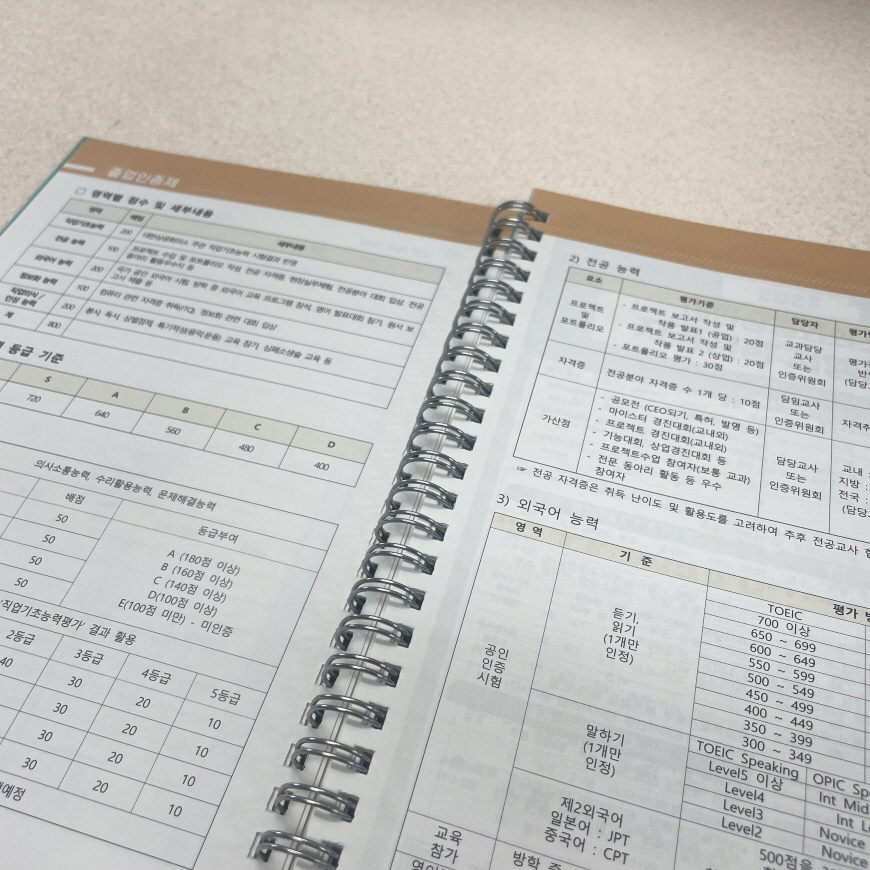 졸업인증제
□ 영역별 점수 및 세부내용
영역 배점 세부내용
직업기초능력 200 대한상공회의소 주관 직업기초능력 시험결과 반영
전공 능력 100 프로젝트 수업 및 포트폴리오 작성, 전공 자격증, 현장실무체험, 전공분야 대회 입상, 전공
동아리 활동우수자 등
외국어 능력 200 국가 공인 외국어 시험, 방학 중 외국어 교육 프로그램 참석, 영어 발표대회 참가, 원서 보
고서 제출 등
정보화 능력 100 컴퓨터 관련 자격증 취득(ITQ), 정보화 관련 대회 입상
직업의식/
인성 능력 200 봉사, 독서, 상벌점제, 특기적성(음악,운동) 교육 참가, 심폐소생술 교육 등
계 800
등급 기준
S A B C D
720 640 560 480 400
의사소통능력, 수리활용능력, 문제해결능력
배점 등급부여
50
50
50
50
A (180점 이상)
B (160점 이상)
C (140점 이상)
D(100점 이상)
E(100점 미만) - 미인증
'직업기초능력평가' 결과 활용
2등급 3등급 4등급 5등급
40 30 20 10
30 20 10
30 20 10
30 20 10
예정
2) 전공 능력
요소 평가기준 담당자
프로젝트
및
포트폴리오
- 프로젝트 보고서 작성 및
작품 발표1 (공업) : 20점
- 프로젝트 보고서 작성 및
작품 발표 2 (상업) : 20점
- 포트폴리오 평가 : 30점
교과담당
교사
또는
인증위원회
자격증 전공분야 자격증 수 1개 당 : 10점
담임교사
또는
인증위원회
가산점
- 공모전 (CEO되기, 특허, 발명 등)
- 마이스터 경진대회(교내외)
- 프로젝트 경진대회(교내외)
- 기능대회, 상업경진대회 등
- 프로젝트수업 참여자(보통 교과)
- 전문 동아리 활동 등 우수
참여자
담당교사
또는
인증위원회
교내 :
지방 :
전국 :
(담당
☞ 전공 자격증은 취득 난이도 및 활용도를 고려하여 추후 전공교사
3) 외국어 능력
영 역 기 준 평가
공인
인증
시험
듣기,
읽기
(1개만
인정)
TOEIC
700 이상
650 ~ 699
600 ~ 649
550 ~ 599
500 ~ 549
450 ~ 499
400 ~ 449
350 ~ 399
300 ~ 349
말하기
(1개만
인정)
TOEIC Speaking OPIC
Level5 이상 Int Mid
Level4 Int
Level3 Novice
Level2 Novice
제2외국어
일본어 : JPT
중국어 : CPT
500점을
교육
참가
방학 중